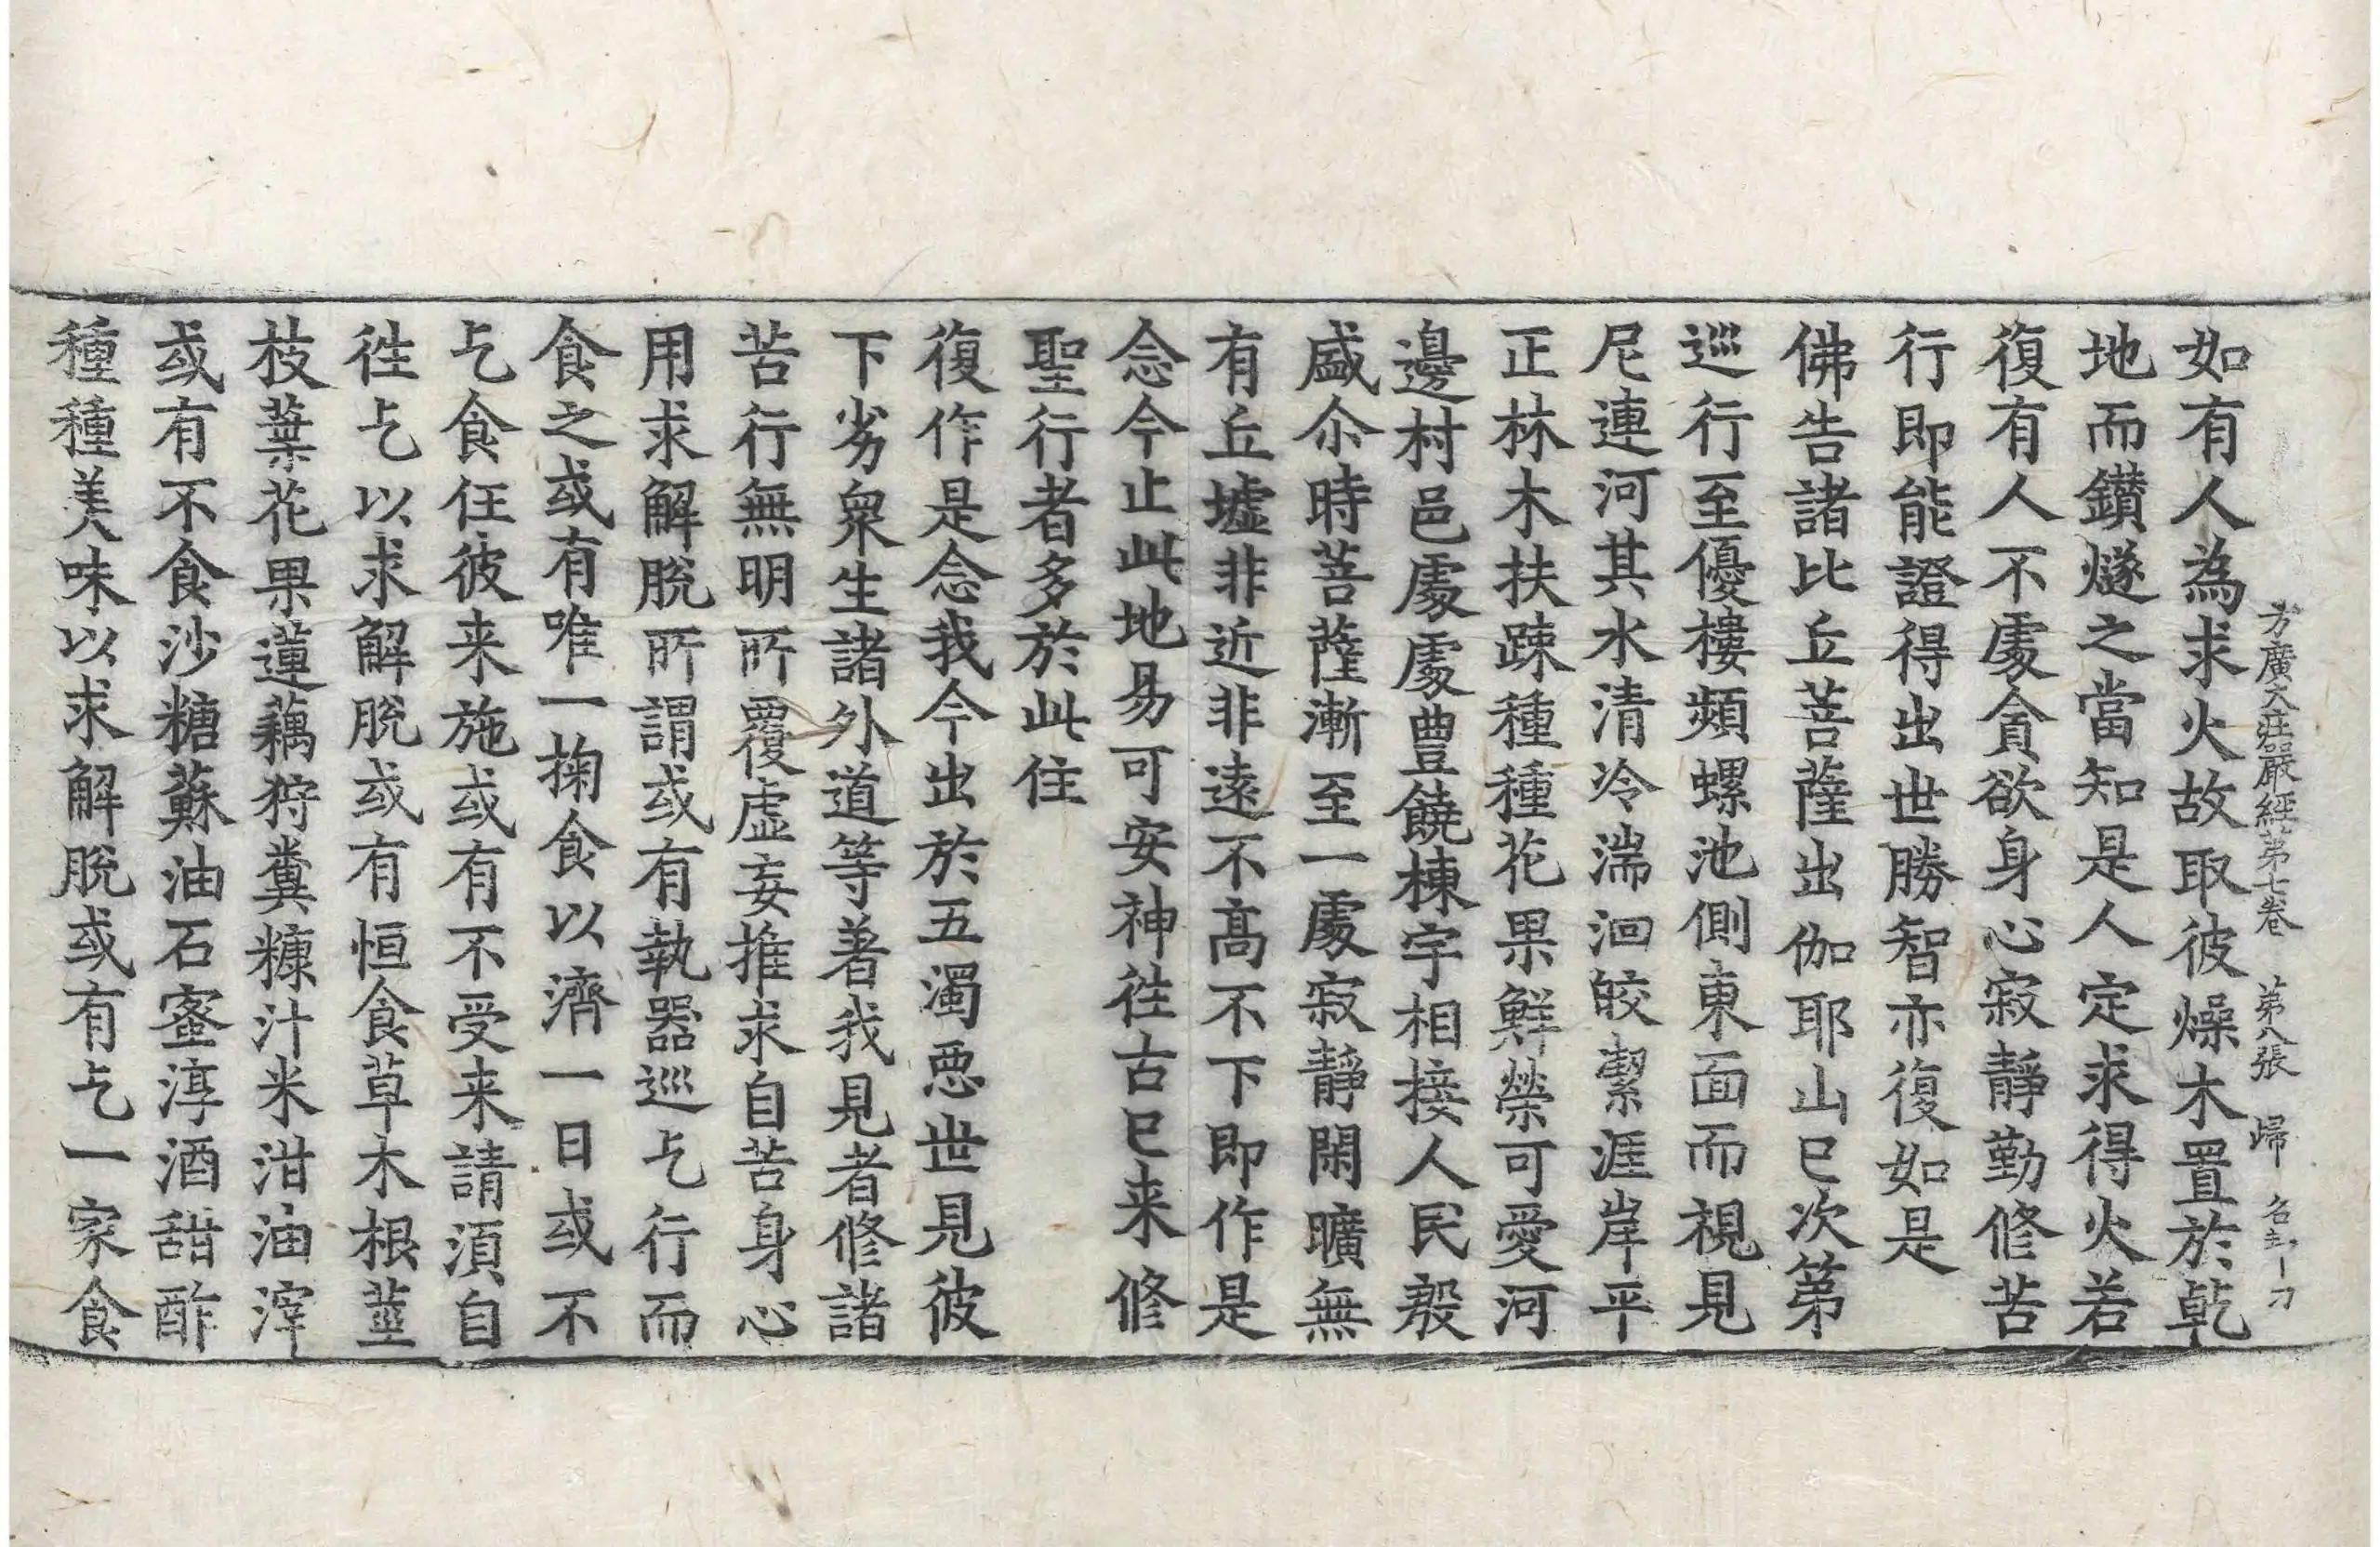 方廣大莊嚴經第七卷　第八張　歸　名 刀
如有人為求火故取彼燥木置於乾
地而鑚燧之當知是人定求得火若
復有人不處貪欲身心寂靜勤修苦
行即能證得出世勝智亦復如是
佛告諸比丘菩薩出伽耶山已次第
巡行至優樓頻螺池側東面而視見
尼連河其水清冷湍洄皎潔涯岸平
正林木扶踈種種花果鮮榮可愛河
邊村邑處處豊饒棟宇相接人民殷
盛尒時菩薩漸至一處寂靜閑曠無
有丘墟非近非遠不髙不下即作是
念今止此地易可安神徃古已来修
聖行者多於此住
復作是念我今出於五濁惡世見彼
下劣衆生諸外道等著我見者修諸
苦行無明所覆虛妄推求自苦身心
用求解脫所謂或有執器巡乞行而
食之或有唯一掬食以濟一日或不
乞食任彼来施或有不受来請湏自
徃乞以求解脫或有恒食草木根莖
枝葉花果蓮藕狩糞糠汁米泔油滓
或有不食沙糖蘇油石蜜淳酒甜酢
種種美味以求解脫或有乞一家食